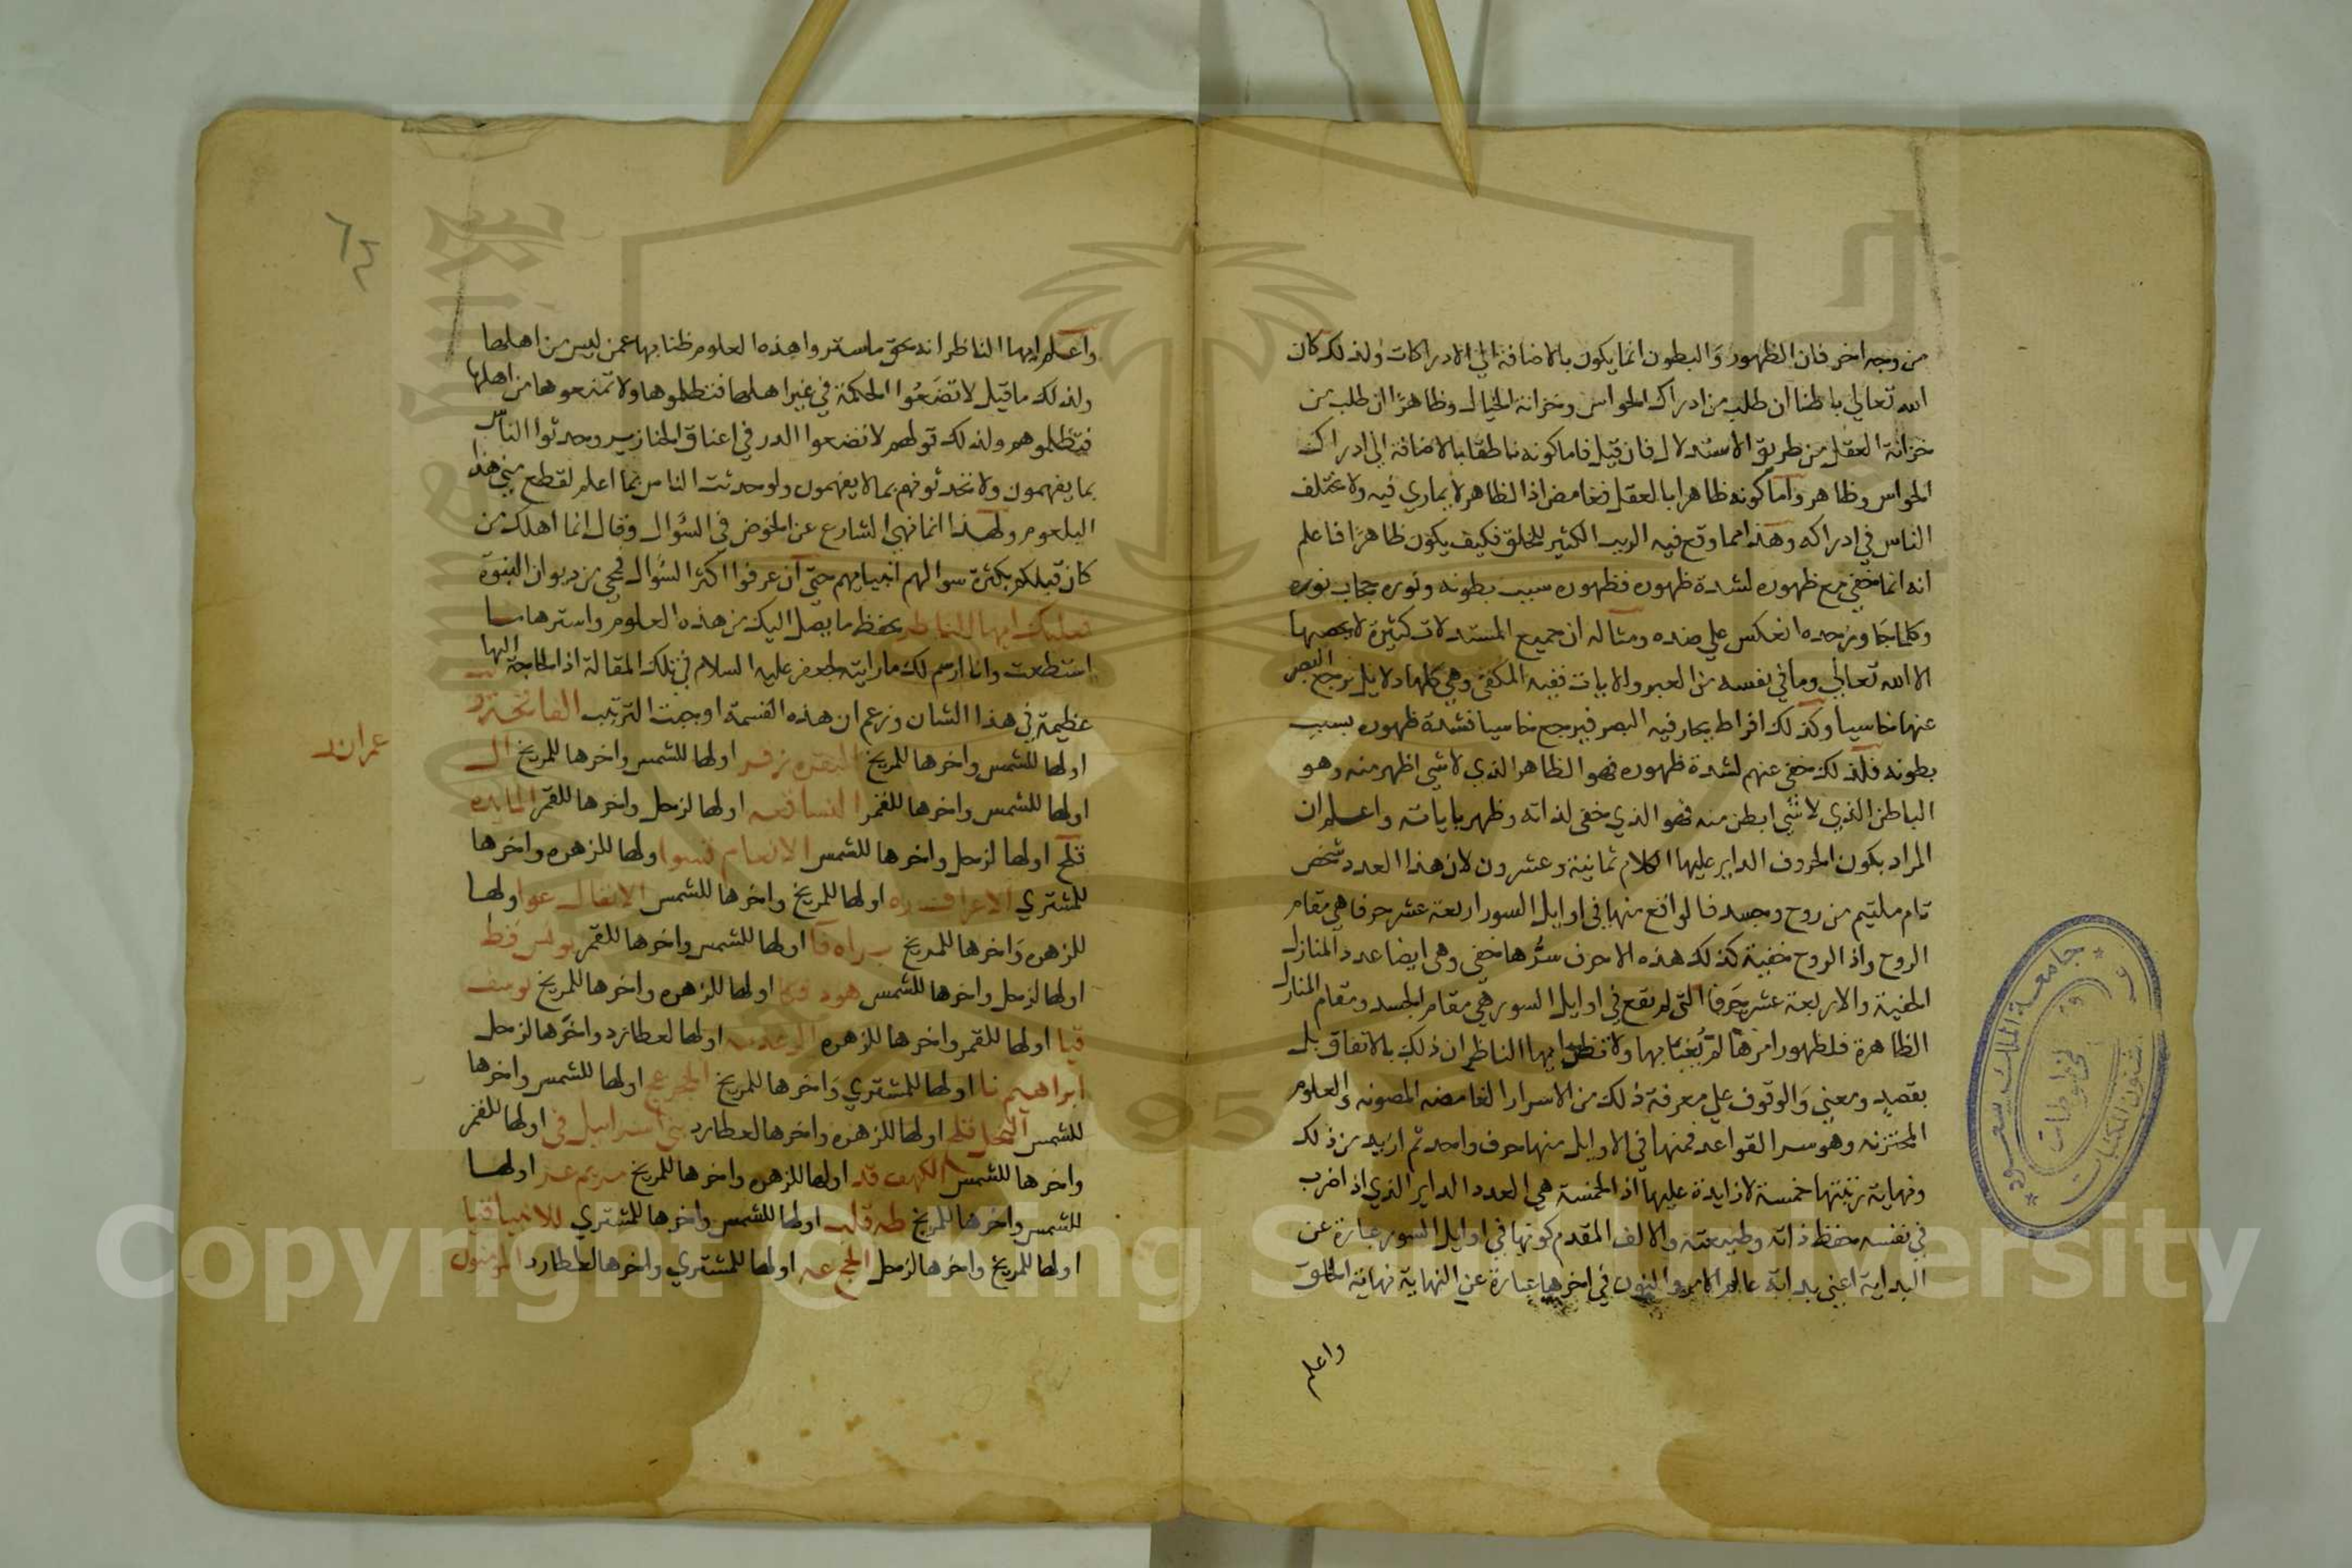 من وجه اخر فان الظهور والبطون انما يكون بالاضافة الي الادراكات ولذلك كان
الله تعالي باطنا ان طلب من ادراك الحواس وخزانة الخيال وظاهرًا ان طلب من
خزانة العقل من طريق الاستدلال فان قيل فاما كونه باطقا بالاضافة الي ادراك
الحواس وظاهر واما كونه ظاهرا بالعقل فغامض اذ الظاهر لا يماري فيه ولا يختلف
الناس في ادراكه وهذا مما وقع فيه الريب الكثير للخلق فكيف يكون ظاهرًا فاعلم
انه انما خفي مع ظهوره لشدة ظهوره فظهوره سبب بطونه ونوره حجاب نوره
وكلما جاوز حده انعكس علي ضده ومثاله ان جميع المستدلات كثيرة لا يحصيها
الا الله تعالي وما في نفسه من العبر والايات ففيه المكفي وهي كلها دلايل يرجع البصر
عنها خاسيا وكذلك افراط يحار فيه البصر فيرجع خاسيا فشدة ظهوره بسبب
بطونه فلذلك خفي عنهم لشدة ظهوره فهو الظاهر الذي لا شي اظهر منه وهو
الباطن الذي لا شي ابطن منه فهو الذي خفي لذاته وظهر باياته واعلم ان
المراد بكون الحروف الداير عليها الكلام ثمانية وعشرون لان هذا العدد شخص
تام ملتيم من روح وجسد فالواقع منها في اوايل السور اربعة عشر حرفا هي مقام
الروح واذ الروح خفية كذلك هذه الاحرف سرُّها خفي وهي ايضا عدد المنازل
الخفية والاربعة عشر حرفا التي لم تقع في اوايل السور هي مقام الجسد ومقام المنازل
الظاهرة فلظهور امرها لم يُعْبَا بها ولا تظن ايها الناظر ان ذلك بالاتفاق بل
بقصدٍ ومعني والوقوف علي معرفة ذلك من الاسرار الغامضه المصونه والعلوم
المختزنه وهو سر القواعد فمنها في الاوايل منها حرف واحد ثم ازيد من ذلك
ونهاية خمسة لا زايدة عليها اذ الخمسة هي العدد الداير الذي اذا ضرب
في نفسه حفظ ذاته وطبيعته والالف المقدم كونها في اوايل السور عبارة عن
البداية اعني بداية عالم الامر والنون في اخرها عبارة عن النهاية نهاية الخلق
واعلم
٦٤
واعلم ايها الناظر انه بحق ما ستروا هذه العلوم ظنا بها عمن ليس من اهلها
ولذلك ما قيل لا تضَعُوا الحكمة في غير اهلها فتظلموها ولا تمنعوها من اهلها
فتظلموهم ولذلك قولهم لا تضعوا الدر في اعناق الخنازير وحدثوا الناس
بما يفهمون ولا تحدثوهم بما لا يفهمون ولو حدثت الناس بما اعلم لقطع مني هذا
البلعوم ولهذا انما نهي الشارع عن الخوض في السؤال وقال انما اهلك من
كان قبلكم بكثرة سوالهم انبيايهم حتي ان عرفوا اكثر السؤال فمحي من ديوان النبوة
فعليك ايها الناظر بحفظ ما يصل اليك من هذه العلوم واسترها ما
استطعت وانا ارسم لك ما رايته لجعفر عليه السلام في تلك المقالة اذ الحاجة اليها
عظيمة في هذا الشان وزعم ان هذه القسمة اوجبت الترتيب الفاتحة
اولها للشمس واخرها للمريخ البقره اولها للشمس واخرها للمريخ ال
عمران
اولها للشمس واخرها للقمر النسا اولها لزحل واخرها للقمر المايده
قلح اولها لزحل واخرها للشمس الانعام اولها للزهره واخرها
للمشتري الاعراف اولها للمريخ واخرها للشمس الانفال عوا اولها
للزهره واخرها للمريخ براه اولها للشمس واخرها للقمر يونس قط
اولها لزحل واخرها للشمس هود اولها للزهره واخرها للمريخ يوسف
قيا اولها للقمر واخرها للزهره الرعد اولها لعطارد واخرها لزحل
ابراهيم نا اولها للمشتري واخرها للمريخ الحجر اولها للشمس واخرها
للشمس النحل اولها للزهره واخرها لعطارد بني اسراييل في اولها للقمر
واخرها للشمس الكهف اولها للزهره واخرها للمريخ مريم اولها
للشمس واخرها للمريخ طه قلب اولها للشمس واخرها للمشتري للانبيا قيا
اولها للمريخ واخرها لزحل الحج اولها للمشتري واخرها لعطارد المومنون
جامعة الملك سعود
شئون المكتبات
مخطوطات
Copyright © King Saud University